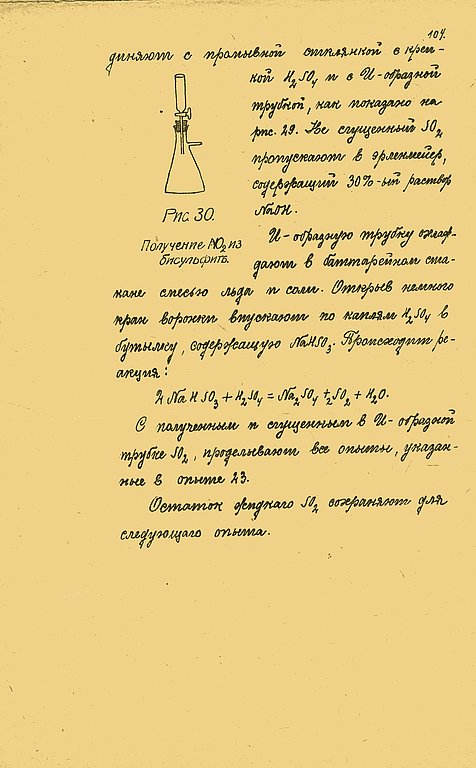 104.
диняют с промывной стклянкой с креп-
кой H2SO4 и с U-образной
трубкой, как показано на
рис. 29. Не сгущенный SO2
пропускают в эрленмейер,
содержащий 30%-ый раствор
NaOH.
Рис 30.
Получение SO2 из
бисульфита.
U-образную трубку охлаж-
дают в баттарейном ста-
кане смесью льда и соли. Открыв немного
кран воронки впускают по каплям H2SO4 в
бутылку, содержащую NaHSO3. Происходит ре-
акция:
2 NaHSO3 + H2SO4 = Na2SO4 + 2SO2 + H2O.
С полученным и сгущенным в U-образной
трубке SO2, проделывают все опыты, указан-
ные в опыте 23.
Остаток жидкаго SO2 сохраняют для
следующаго опыта.